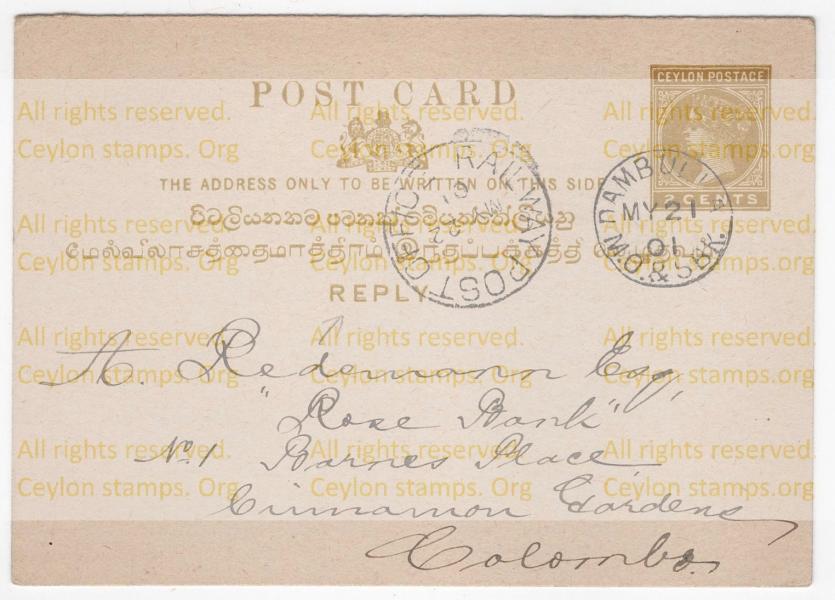 CEYLON POSTAGE
POST CARD
THE ADDRESS ONLY TO BE WRITTEN ON THIS SIDE
2 CENTS
REPLY
RAILWAY POST OFFICE
01
MY 22
DAMBULLA
MY 21
01
M.O. & S.BK.
A. Redemann Esq,
"Rose Bank"
No. 1 Barnes Place
Cinnamon Gardens
Colombo.
All rights reserved.
Ceylon stamps. Org
All rights reserved.
Ceylon stamps. Org
All rights reserved.
Ceylon stamps. Org
All rights reserved.
Ceylon stamps. Org
All rights reserved.
Ceylon stamps. Org
All rights reserved.
Ceylon stamps. Org
All rights reserved.
Ceylon stamps. Org
All rights reserved.
Ceylon stamps. Org
All rights reserved.
Ceylon stamps. Org
All rights reserved.
Ceylon stamps. Org
All rights reserved.
Ceylon stamps. Org
All rights reserved.
Ceylon stamps. Org